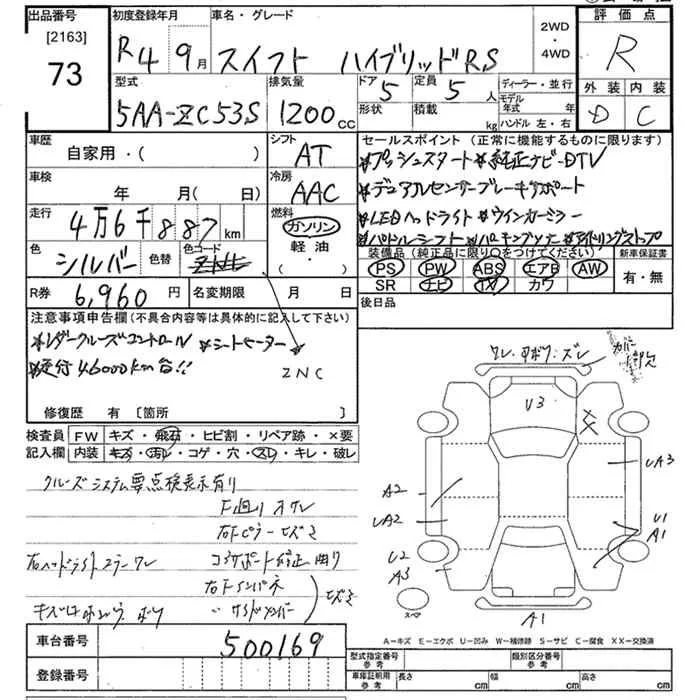 出品番号 初度登録年月 車名・グレード 2WD・4WD 評価点
[2163]
73
R4 9月 スイフト ハイブリッドRS R
型式 排気量 ドア 定員 ディーラー・並行 外装 内装
5AA-ZC53S 1200cc 5 5人 モデル年式 年 D C
形状 積載 kg ハンドル 左・右
車歴 シフト セールスポイント(正常に機能するものに限ります)
自家用・( ) AT
*プッシュスタート *純正ナビ・DTV
車検 冷房
年 月(日) AAC
*デュアルセンサーブレーキサポート
走行 燃料
4万6千887km ガソリン
*LEDヘッドライト *ウインカーミラー
軽油・( )
*パドルシフト *パーキングソナー *アイドリングストップ
色 色替 色コード
シルバー
装備品(純正品に限り○をつけてください) 新車保証書
PS PW ABS エアB AW 有・無
SR ナビ TV カワ
R券 6,960円 名変期限 月 日
後日品
注意事項申告欄(不具合内容等は具体的に記入して下さい)
*レダークルーズコントロール *シートヒーター
*走行46000km台!!
ZNC
修復歴 有 [箇所 ]
検査員記入欄 FW キズ・飛石・ヒビ割・リペア跡・×要
内装 キズ・汚レ・コゲ・穴・スレ・キレ・破レ
クルーズシステム要点検表示有り
F廻り
右Fピラー ヒズミ
右ヘッドライト ステー ワレ
コアサポート 修正
右Fインパネ
サイドメンバー
ヒズミ
U3
A2
UA2
UA3
U1
A1
U2
A3
A1
スペア
A-キズ E-エクボ U-凹み W-補修跡 S-サビ C-腐食 XX-交換済
車台番号 500169
登録番号
型式指定番号 参考 類別区分番号 参考
車庫証明用 参考 長さ cm 幅 cm 高さ cm